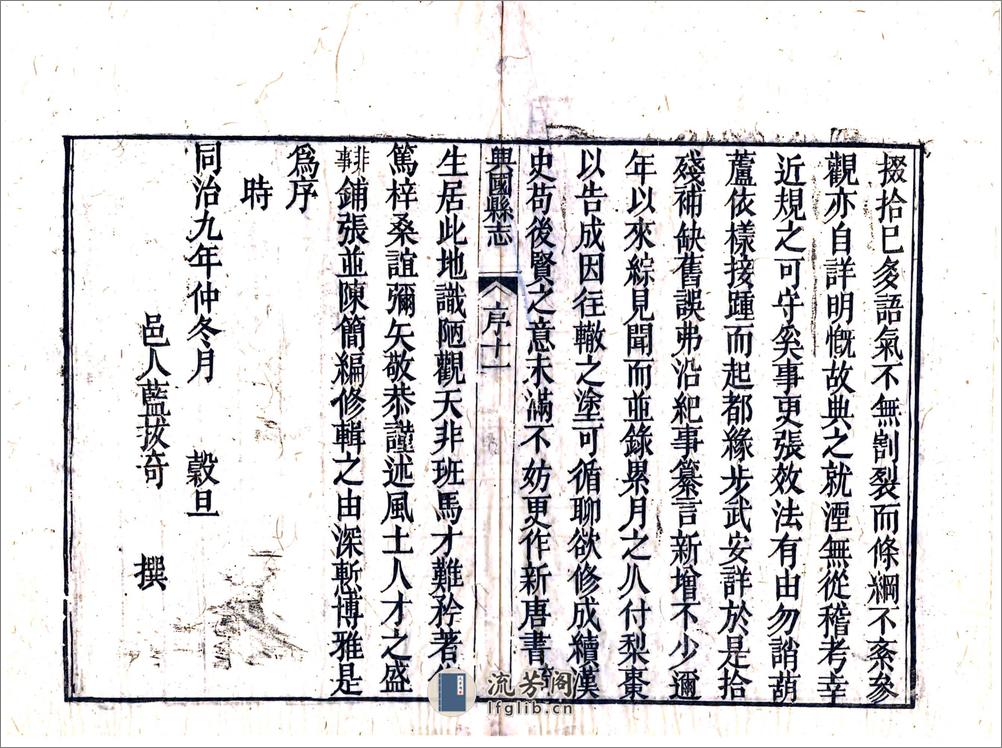 掇拾已多語氣不無割裂而條綱不紊參
觀亦自詳明慨故典之就湮無從稽考幸
近規之可守奚事更張效法有由勿誚葫
蘆依樣接踵而起都緣步武安詳於是拾
殘補缺舊誤弗沿紀事纂言新增不少邇
年以來綜見聞而並錄累月之久付梨棗
以告成因往轍之塗可循聊欲修成續漢
史苟後賢之意未滿不妨更作新唐書
興國縣志
序十一
生居此地識陋觀天非班馬才難矜著
篤梓桑誼彌矢敬恭謹述風土人才之盛
非
鋪張並陳簡編修輯之由深慙博雅是
為序
時
同治九年仲冬月 穀旦
邑人藍拔奇 撰
流芳阁
lfglib.cn